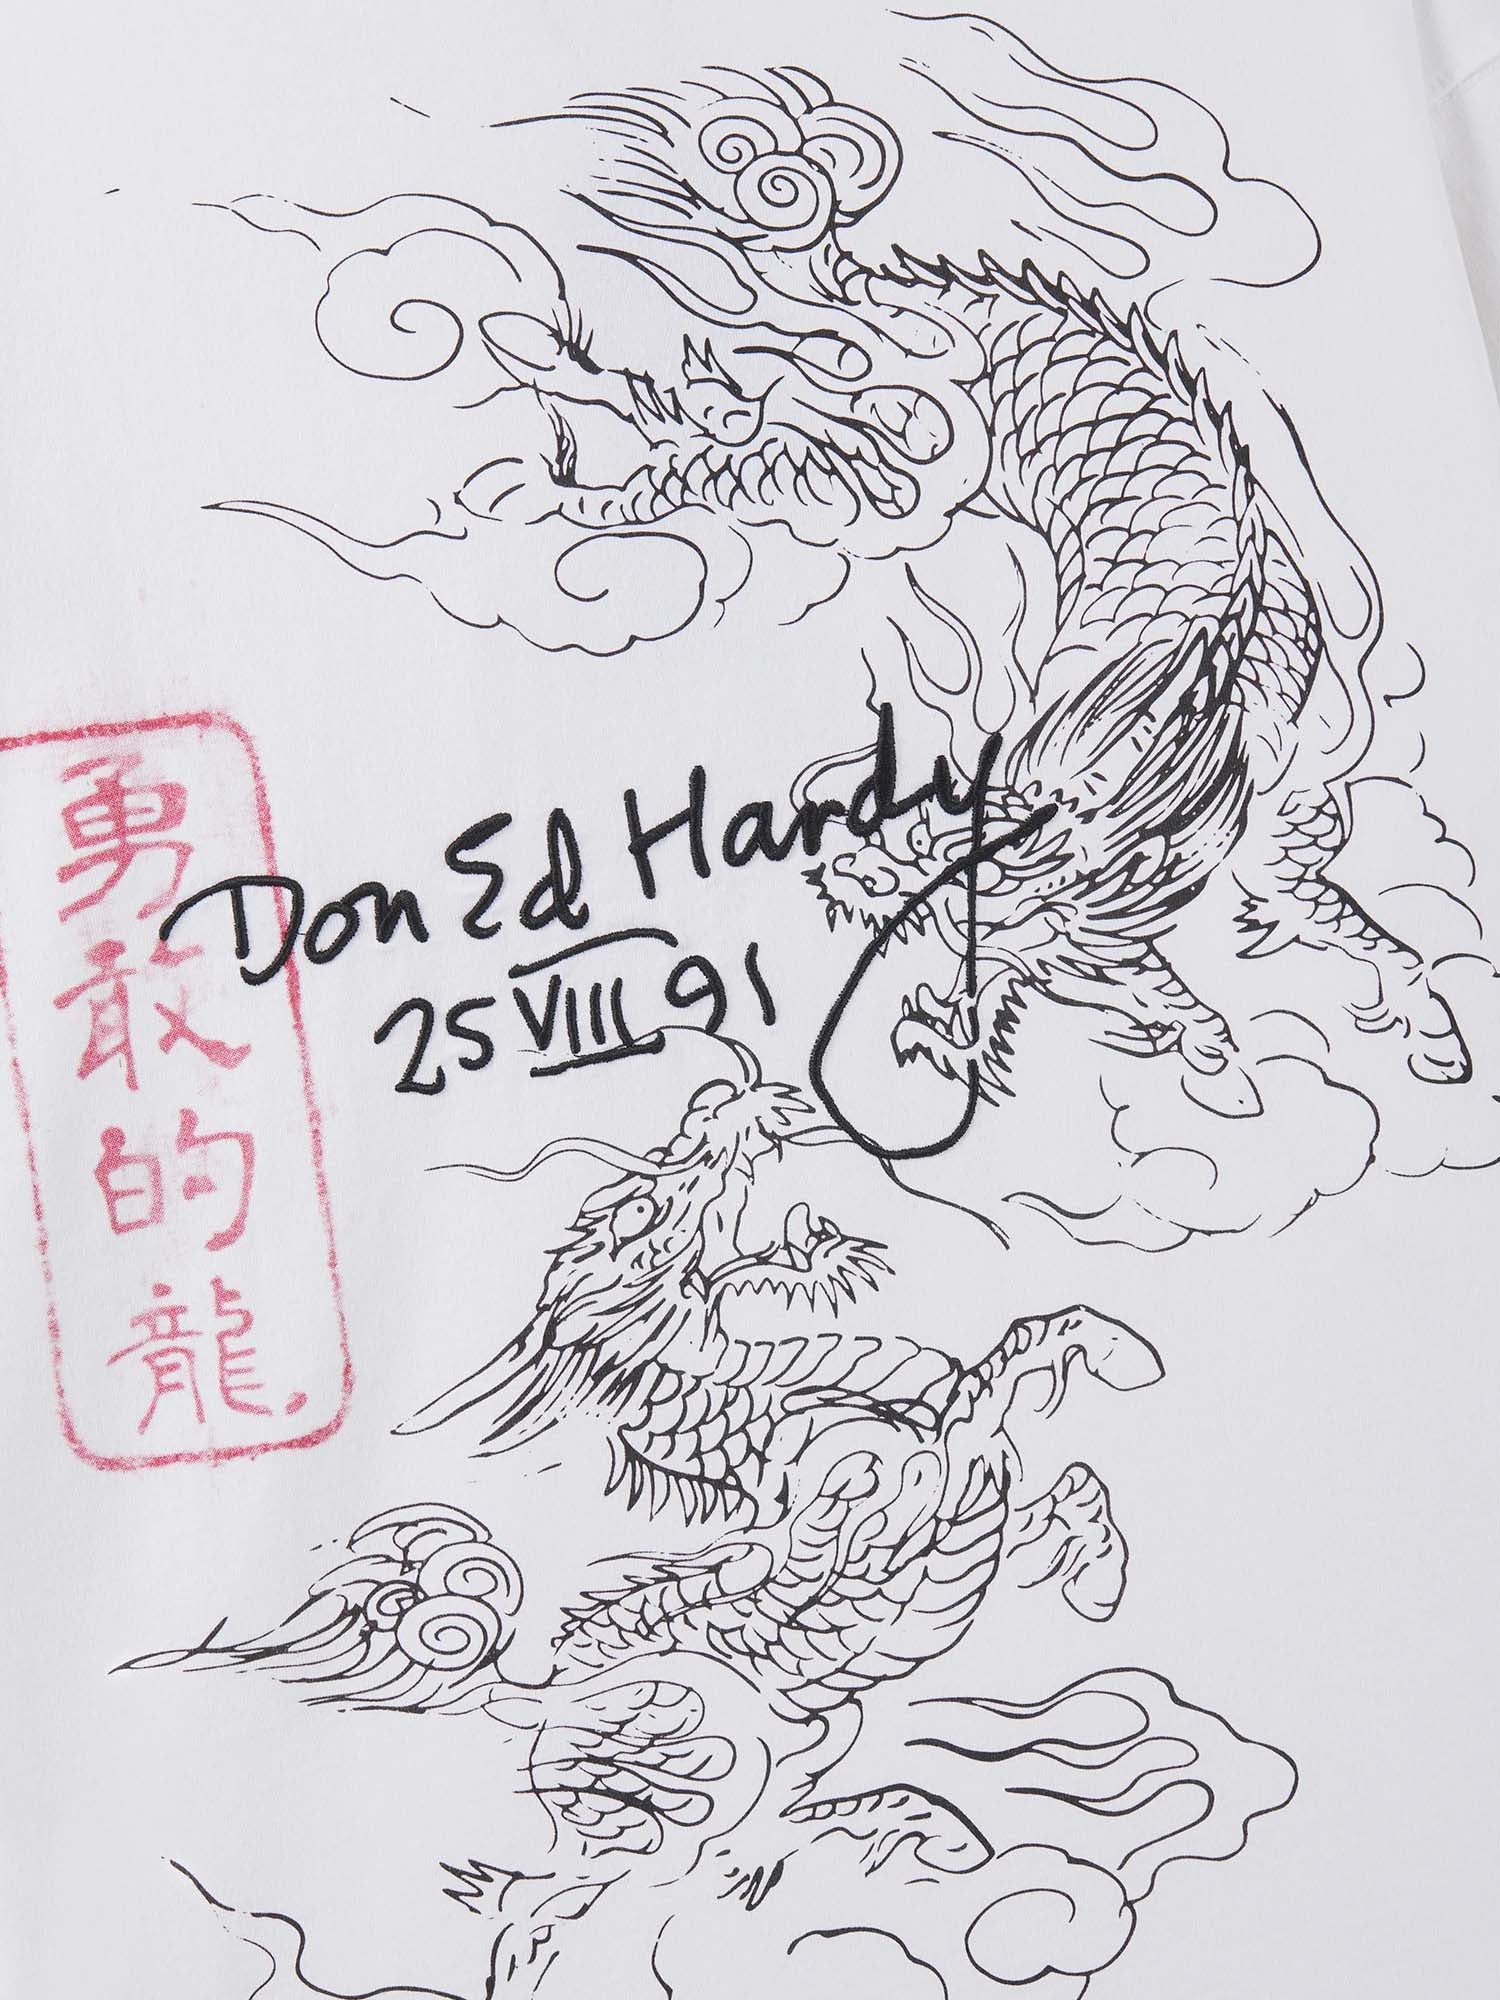 勇敢的龍
Don Ed Hardy
25 VIII 91